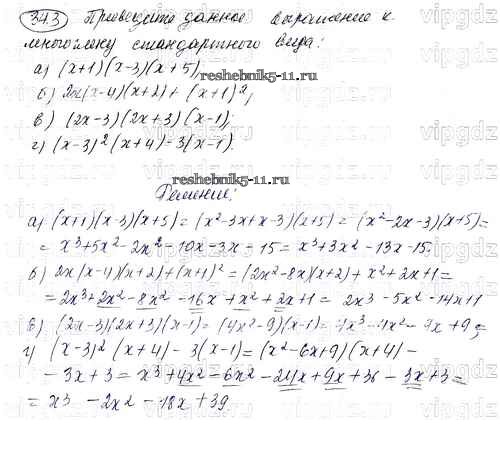 343 Приведите данное выражение к
многочлену стандартного вида:
а) (x+1)(x-3)(x+5);
б) 2x(x-4)(x+2) + (x+1)²;
в) (2x-3)(2x+3)(x-1);
г) (x-3)²(x+4)-3(x-1).
reshebnik5-11.ru
reshebnik5-11.ru
Решение:
а) (x+1)(x-3)(x+5) = (x²-3x+x-3)(x+5) = (x²-2x-3)(x+5) =
= x³+5x²-2x²-10x-3x-15 = x³+3x²-13x-15.
б) 2x(x-4)(x+2)+(x+1)² = (2x²-8x)(x+2) + x²+2x+1 =
= 2x³+2x²-8x²-16x+x²+2x+1 = 2x³-5x²-14x+1
в) (2x-3)(2x+3)(x-1) = (4x²-9)(x-1) = 4x³-4x²-9x+9;
г) (x-3)²(x+4)-3(x-1) = (x²-6x+9)(x+4)-
-3x+3 = x³+4x²-6x²-24x+9x+36-3x+3 =
= x³-2x²-18x+39
vipgdz